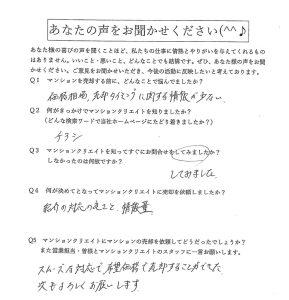 あなたの声をお聞かせください(^^♪
あなた様の喜びの声を聞くことほど、私たちの仕事に情熱とやりがいを与えてくれるもの
はありません。いいこと・悪いこと、どんなことでも結構です。ぜひ、あなた様の声をお聞
かせください。ご意見をお聞かせいただき、今後の活動に反映したいと考えております。
Q1 マンションを売却する前に、どんなことで悩んでましたか?
価格相場、売却タイミングに関する情報が少ない
Q2 何がきっかけでマンションクリエイトを知りましたか?
(どんな検索ワードで当社ホームページにたどり着きましたか?)
チラシ
Q3 マンションクリエイトを知ってすぐにお問合せをしてみましたか?
しなかったのは何故ですか?
してみました
Q4 何が決めてとなってマンションクリエイトに売却を依頼しましたか?
対応の良さと、情報量
Q5 マンションクリエイトにマンションの売却を依頼してどうだったでしょうか?
また営業担当・皆様とマンションクリエイトのスタッフに一言お願いします。
スムーズな対応で希望価格で売却することができた
次もよろしくお願いします